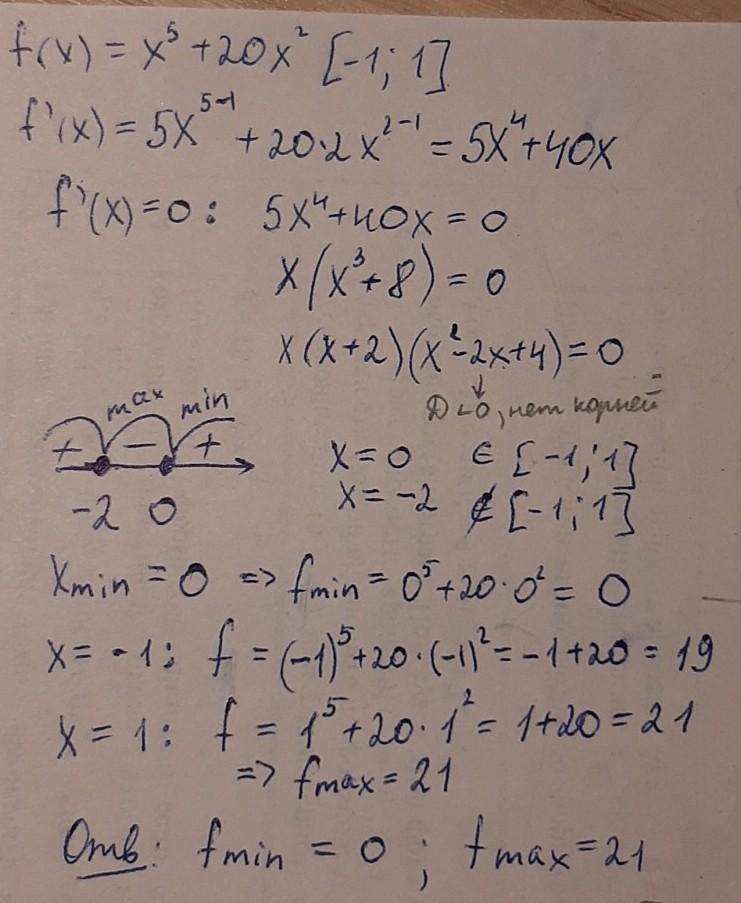 f(x) = x⁵ + 20x² [-1; 1]
f'(x) = 5x⁵⁻¹ + 20·2x²⁻¹ = 5x⁴+40x
f'(x)=0 : 5x⁴+40x = 0
x(x³+8) = 0
x(x+2)(x²-2x+4) = 0
D<0, нет корней
max min
+ − +
-2 0
x = 0 ∈ [-1; 1]
x = -2 ∉ [-1; 1]
xmin = 0 => fmin = 0⁵+20·0² = 0
x = -1: f = (-1)⁵+20·(-1)² = -1+20 = 19
x = 1: f = 1⁵+20·1² = 1+20 = 21
=> fmax = 21
Отв: fmin = 0 ; fmax = 21